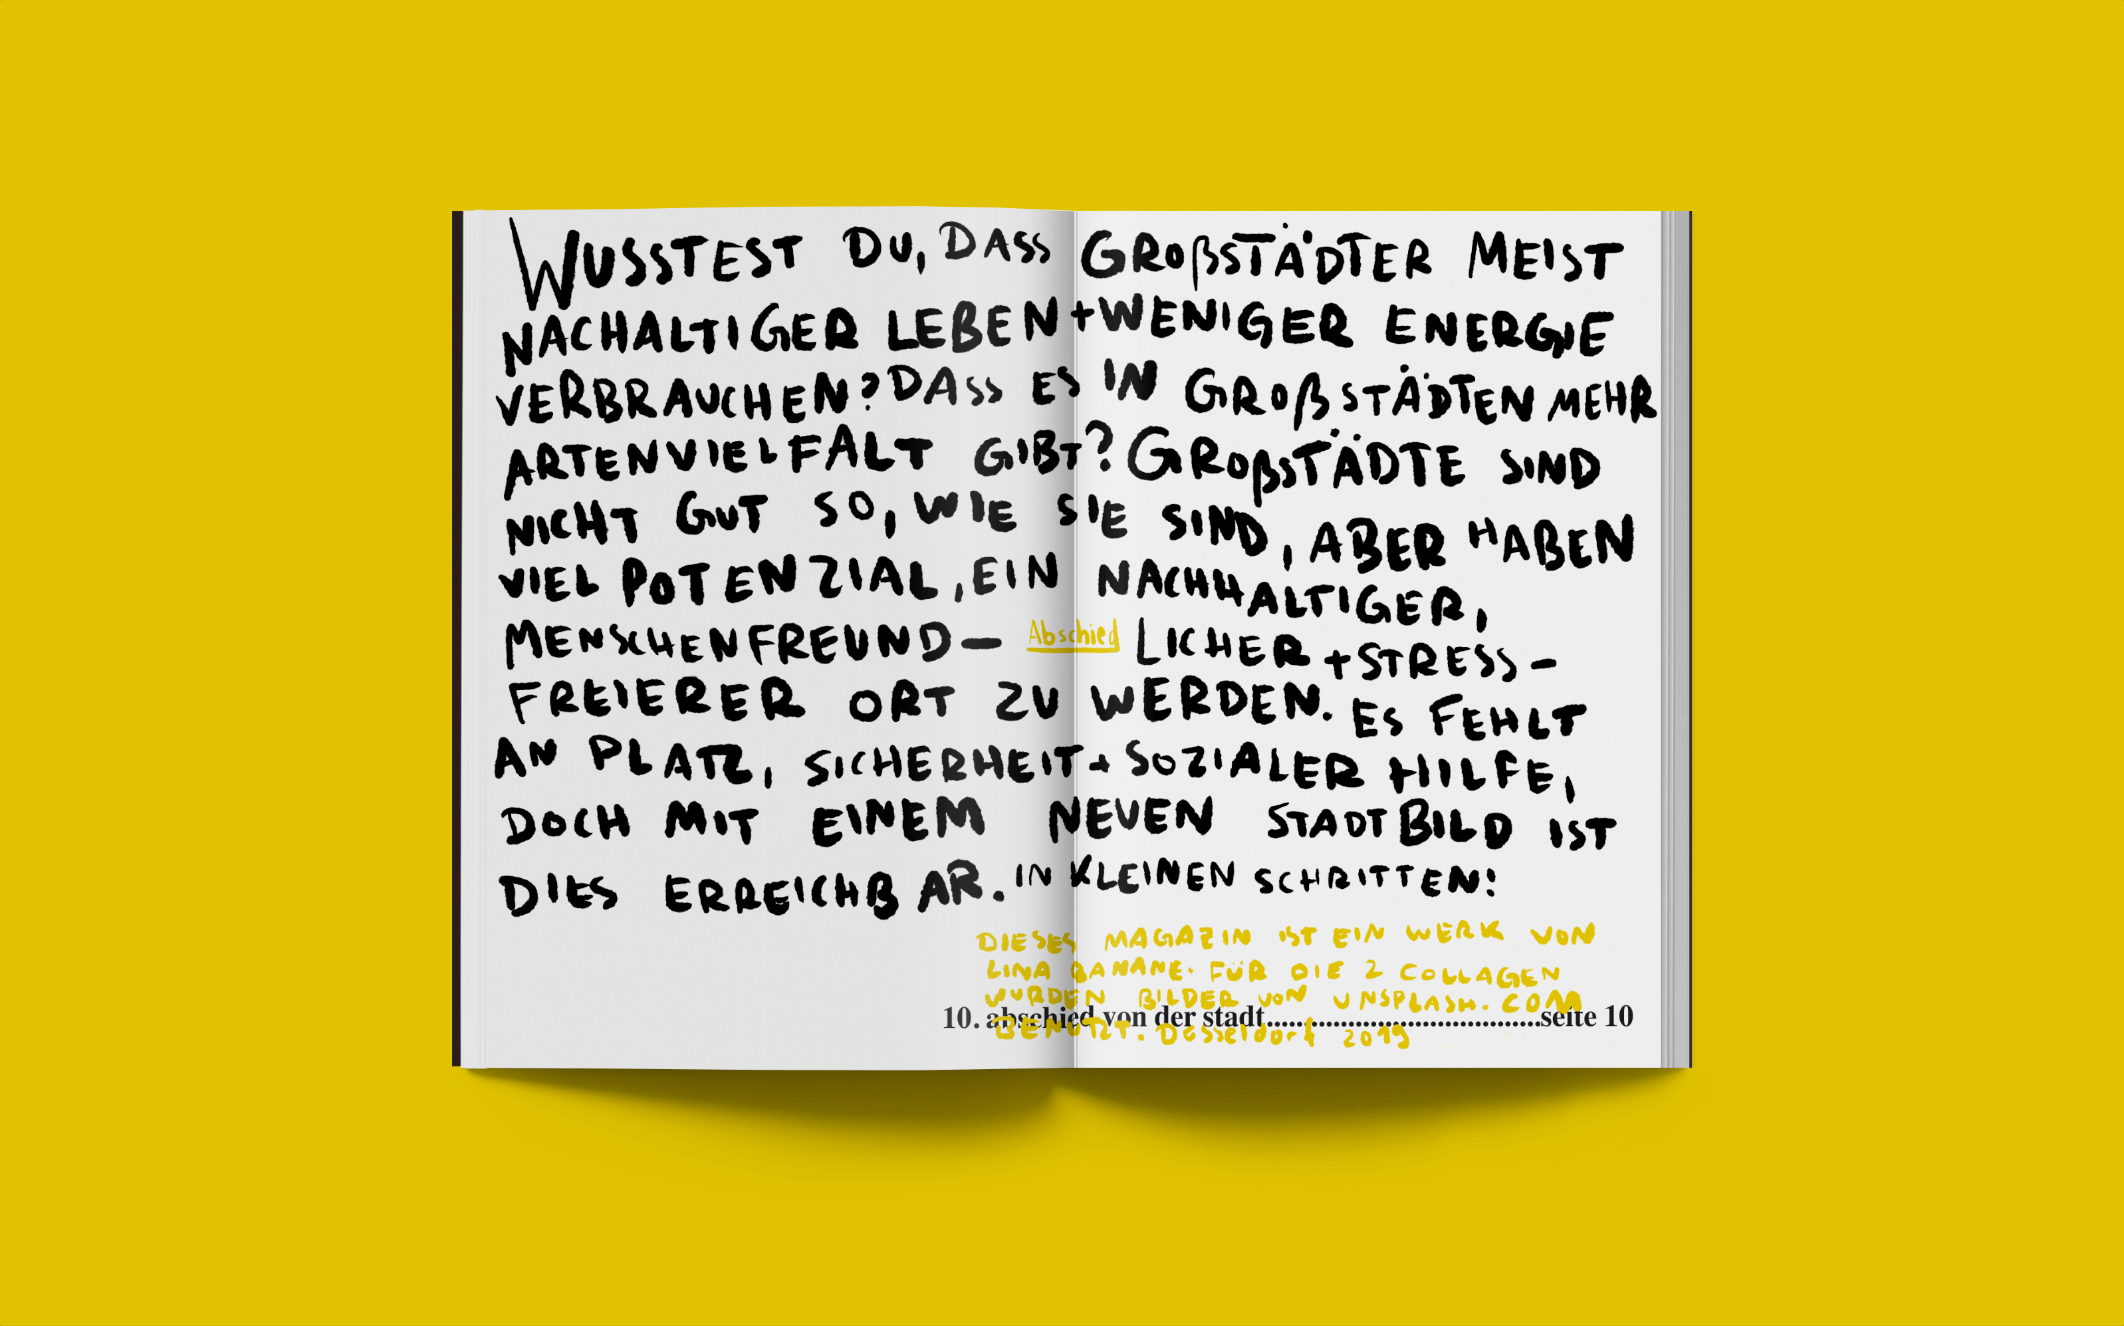 WUSSTEST DU, DASS GROßSTÄDTER MEIST
NACHALTIGER LEBEN + WENIGER ENERGIE
VERBRAUCHEN? DASS ES IN GROßSTÄDTEN MEHR
ARTENVIELFALT GIBT? GROßSTÄDTE SIND
NICHT GUT SO, WIE SIE SIND, ABER HABEN
VIEL POTENZIAL, EIN NACHHALTIGER,
MENSCHENFREUND- Abschied LICHER + STRESS-
FREIERER ORT ZU WERDEN. ES FEHLT
AN PLATZ, SICHERHEIT + SOZIALER HILFE,
DOCH MIT EINEM NEUEN STADTBILD IST
DIES ERREICHBAR. IN KLEINEN SCHRITTEN!
DIESES MAGAZIN IST EIN WERK VON
LINA BANANE. FÜR DIE 2 COLLAGEN
WURDEN BILDER VON UNSPLASH.COM
10. abschied von der stadt........................................seite 10
BENUTZT. Düsseldorf 2019